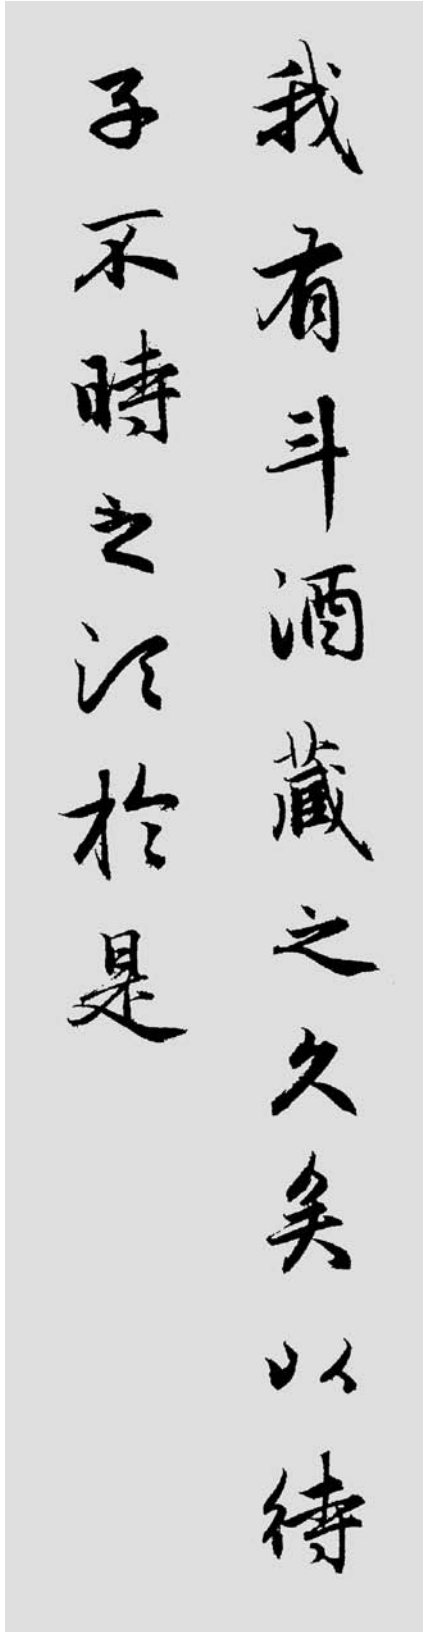 我有斗酒藏之久矣以待
子不時之須於是